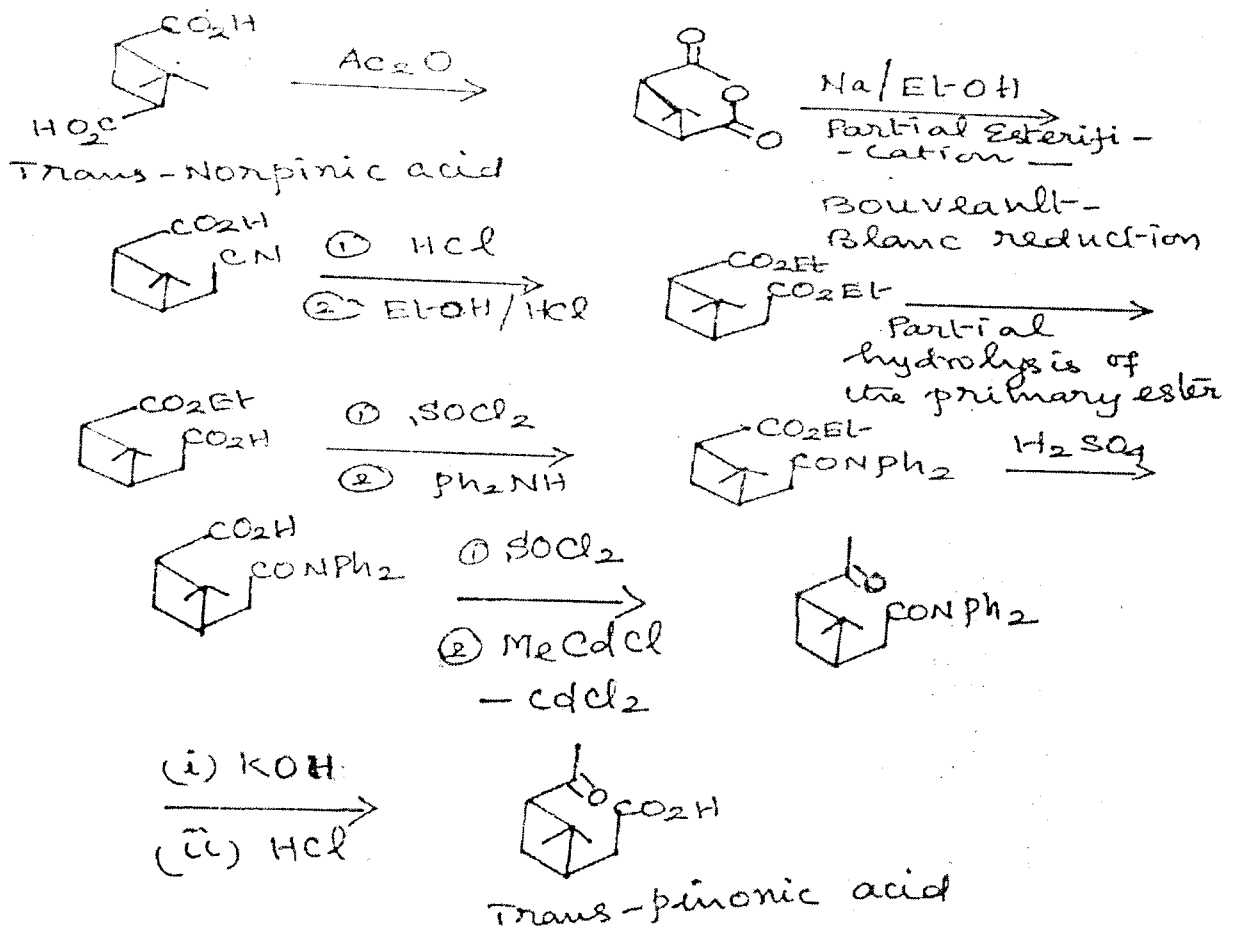 CO2H
Ac2O
HO2C
Trans-Norpinic acid
O
O
O
Na/Et-OH
Partial Esterifi-
-cation —
Bouveault-
Blanc reduction
CO2H
CN
① HCl
② Et-OH/HCl
CO2Et
CO2Et
Partial
hydrolysis of
the primary ester
CO2Et
CO2H
① SOCl2
② Ph2NH
CO2Et
CONPh2
H2SO4
CO2H
CONPh2
① SOCl2
② MeCdCl
- CdCl2
O
CONPh2
(i) KOH
(ii) HCl
O
CO2H
Trans-pinonic acid